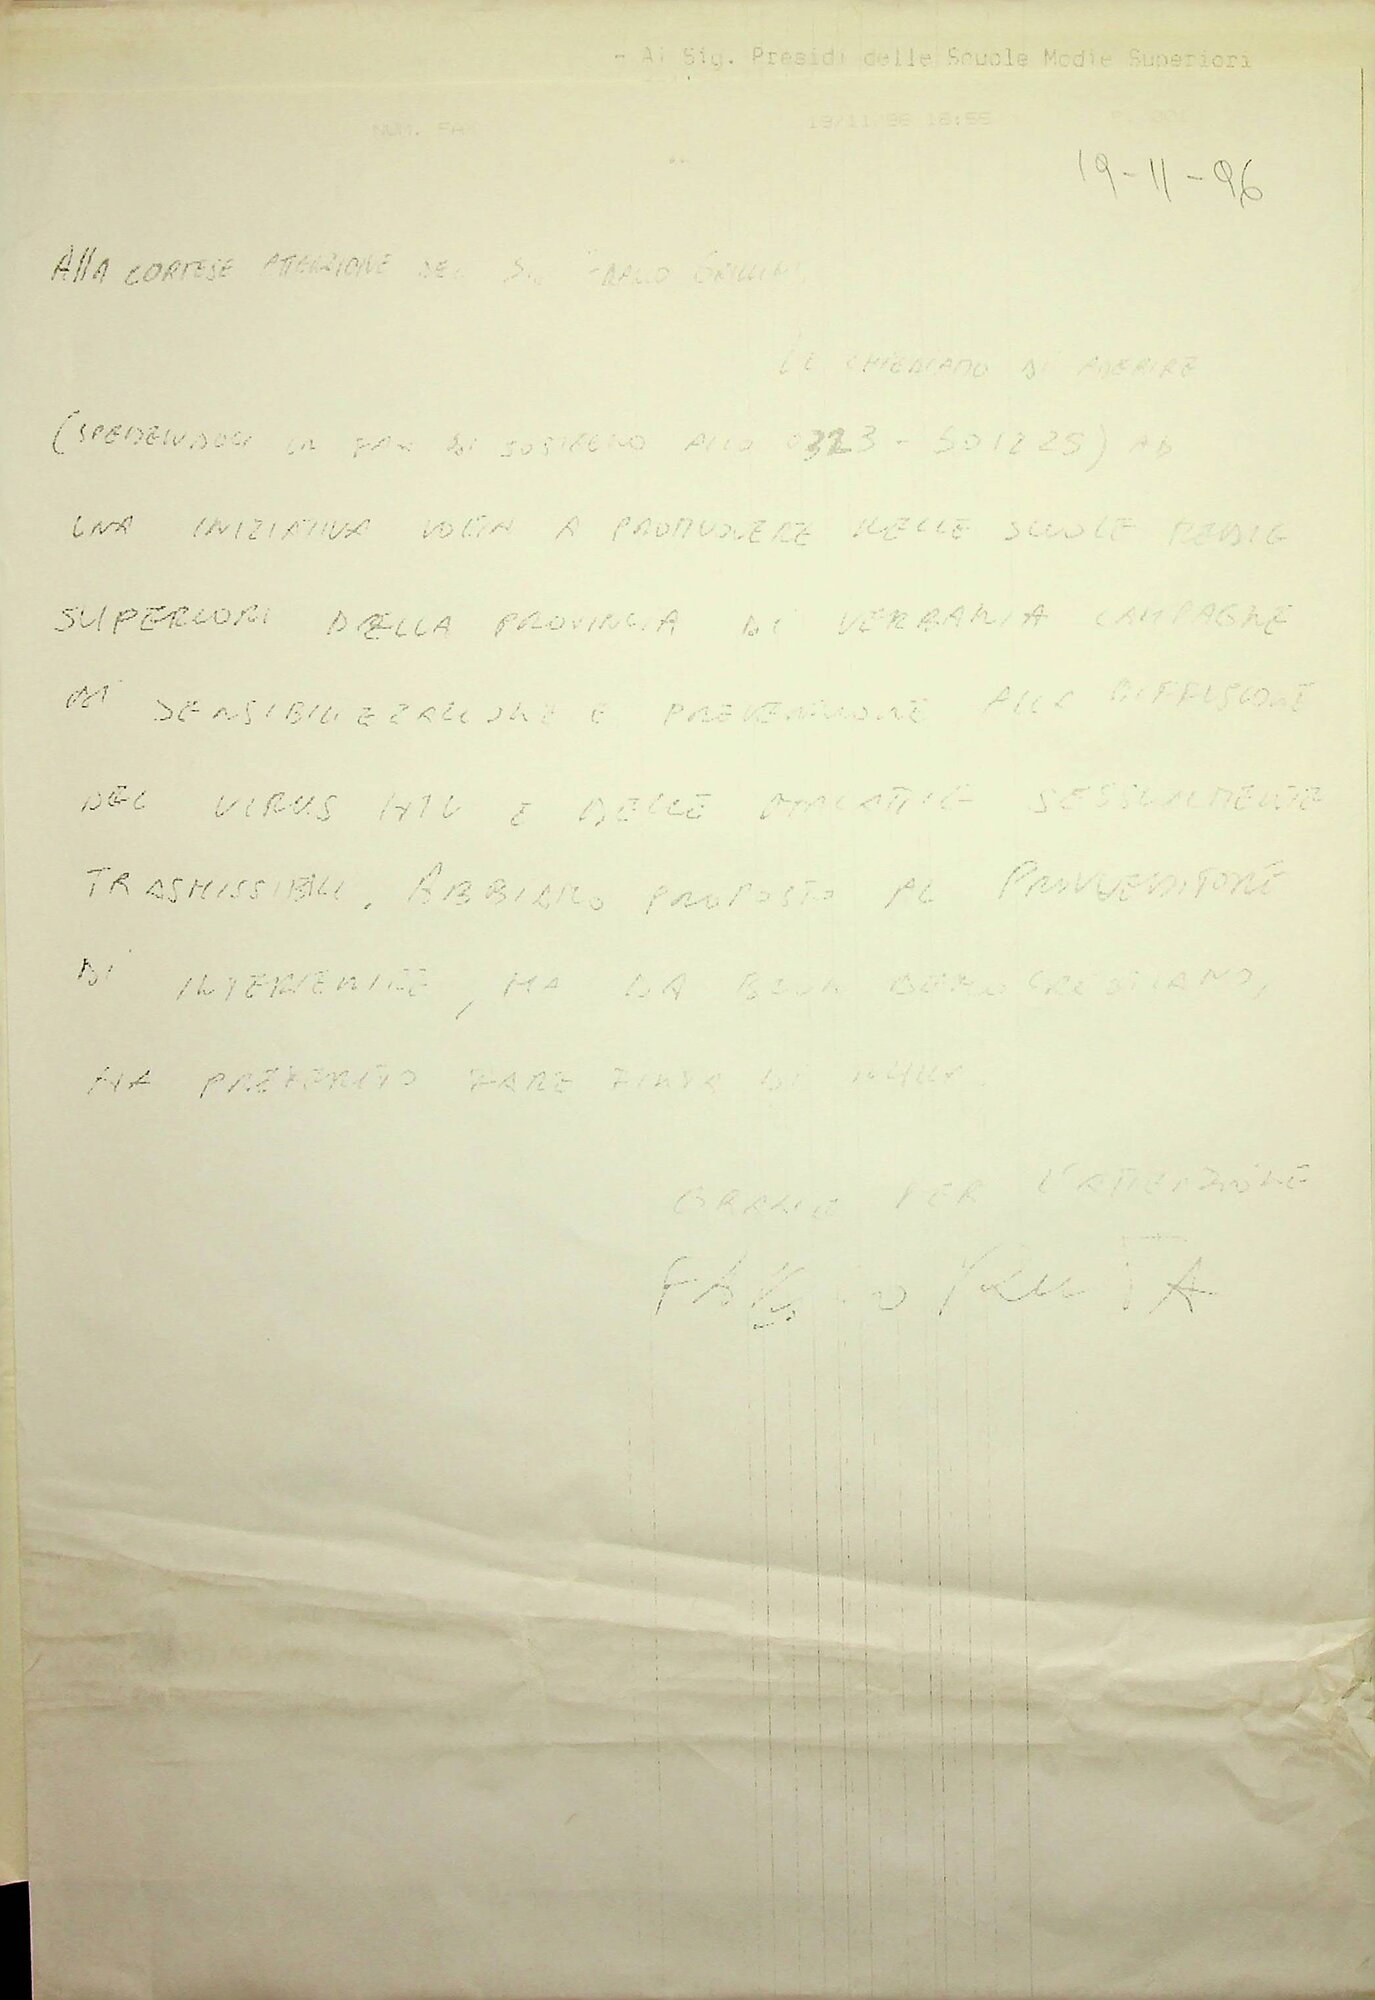 - Ai Sig. Presidi delle Scuole Medie Superiori
NUM. FAX 19/11/96 16:55
19-11-96
Alla CORTESE ATTENZIONE DEL SIG. FRANCO GRILLINI
LE CHIEDIAMO DI ADERIRE
(SPEDENDOCI UN FAX DI SOSTEGNO ALLO 0323-501225) AD
UNA INIZIATIVA VOLTA A PROMUOVERE NELLE SCUOLE MEDIE
SUPERIORI DELLA PROVINCIA DI VERBANIA CAMPAGNE
DI SENSIBILIZZAZIONE E PREVENZIONE ALLA DIFFUSIONE
DEL VIRUS HIV E DELLE MALATTIE SESSUALMENTE
TRASMISSIBILI. ABBIAMO PROPOSTO AL PROVVEDITORE
DI INTERVENIRE, MA DA BUON DEMOCRISTIANO,
HA PREFERITO FARE FINTA DI NULLA.
GRAZIE PER L'ATTENZIONE
FABIO